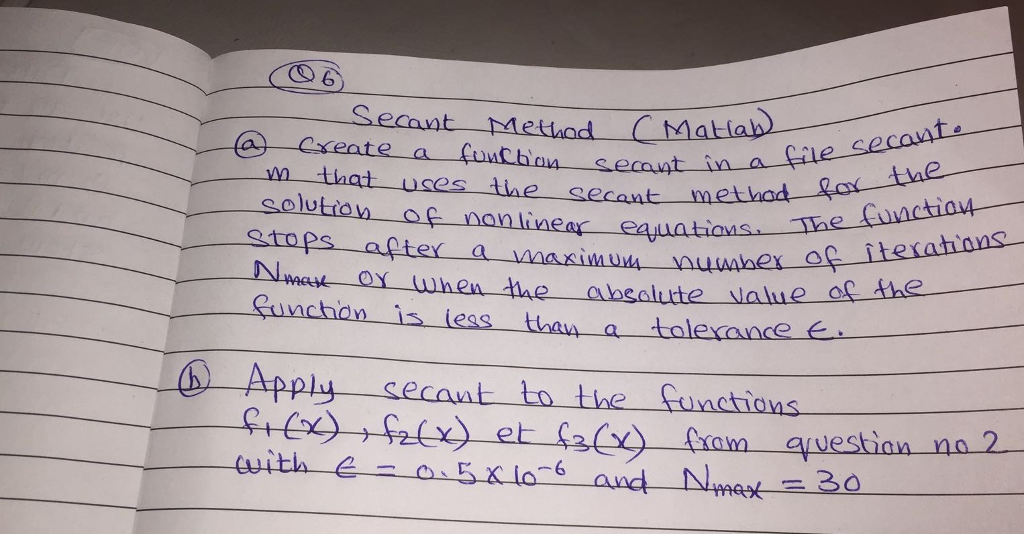 Q6
Secant Method (Matlab)
(a) Create a function secant in a file secant.
m that uses the secant method for the
solution of nonlinear equations. The function
stops after a maximum number of iterations
Nmax or when the absolute value of the
function is less than a tolerance ε.
(b) Apply secant to the functions
f1(x), f2(x) et f3(x) from question no 2
with ε = 0.5x10^-6 and Nmax = 30